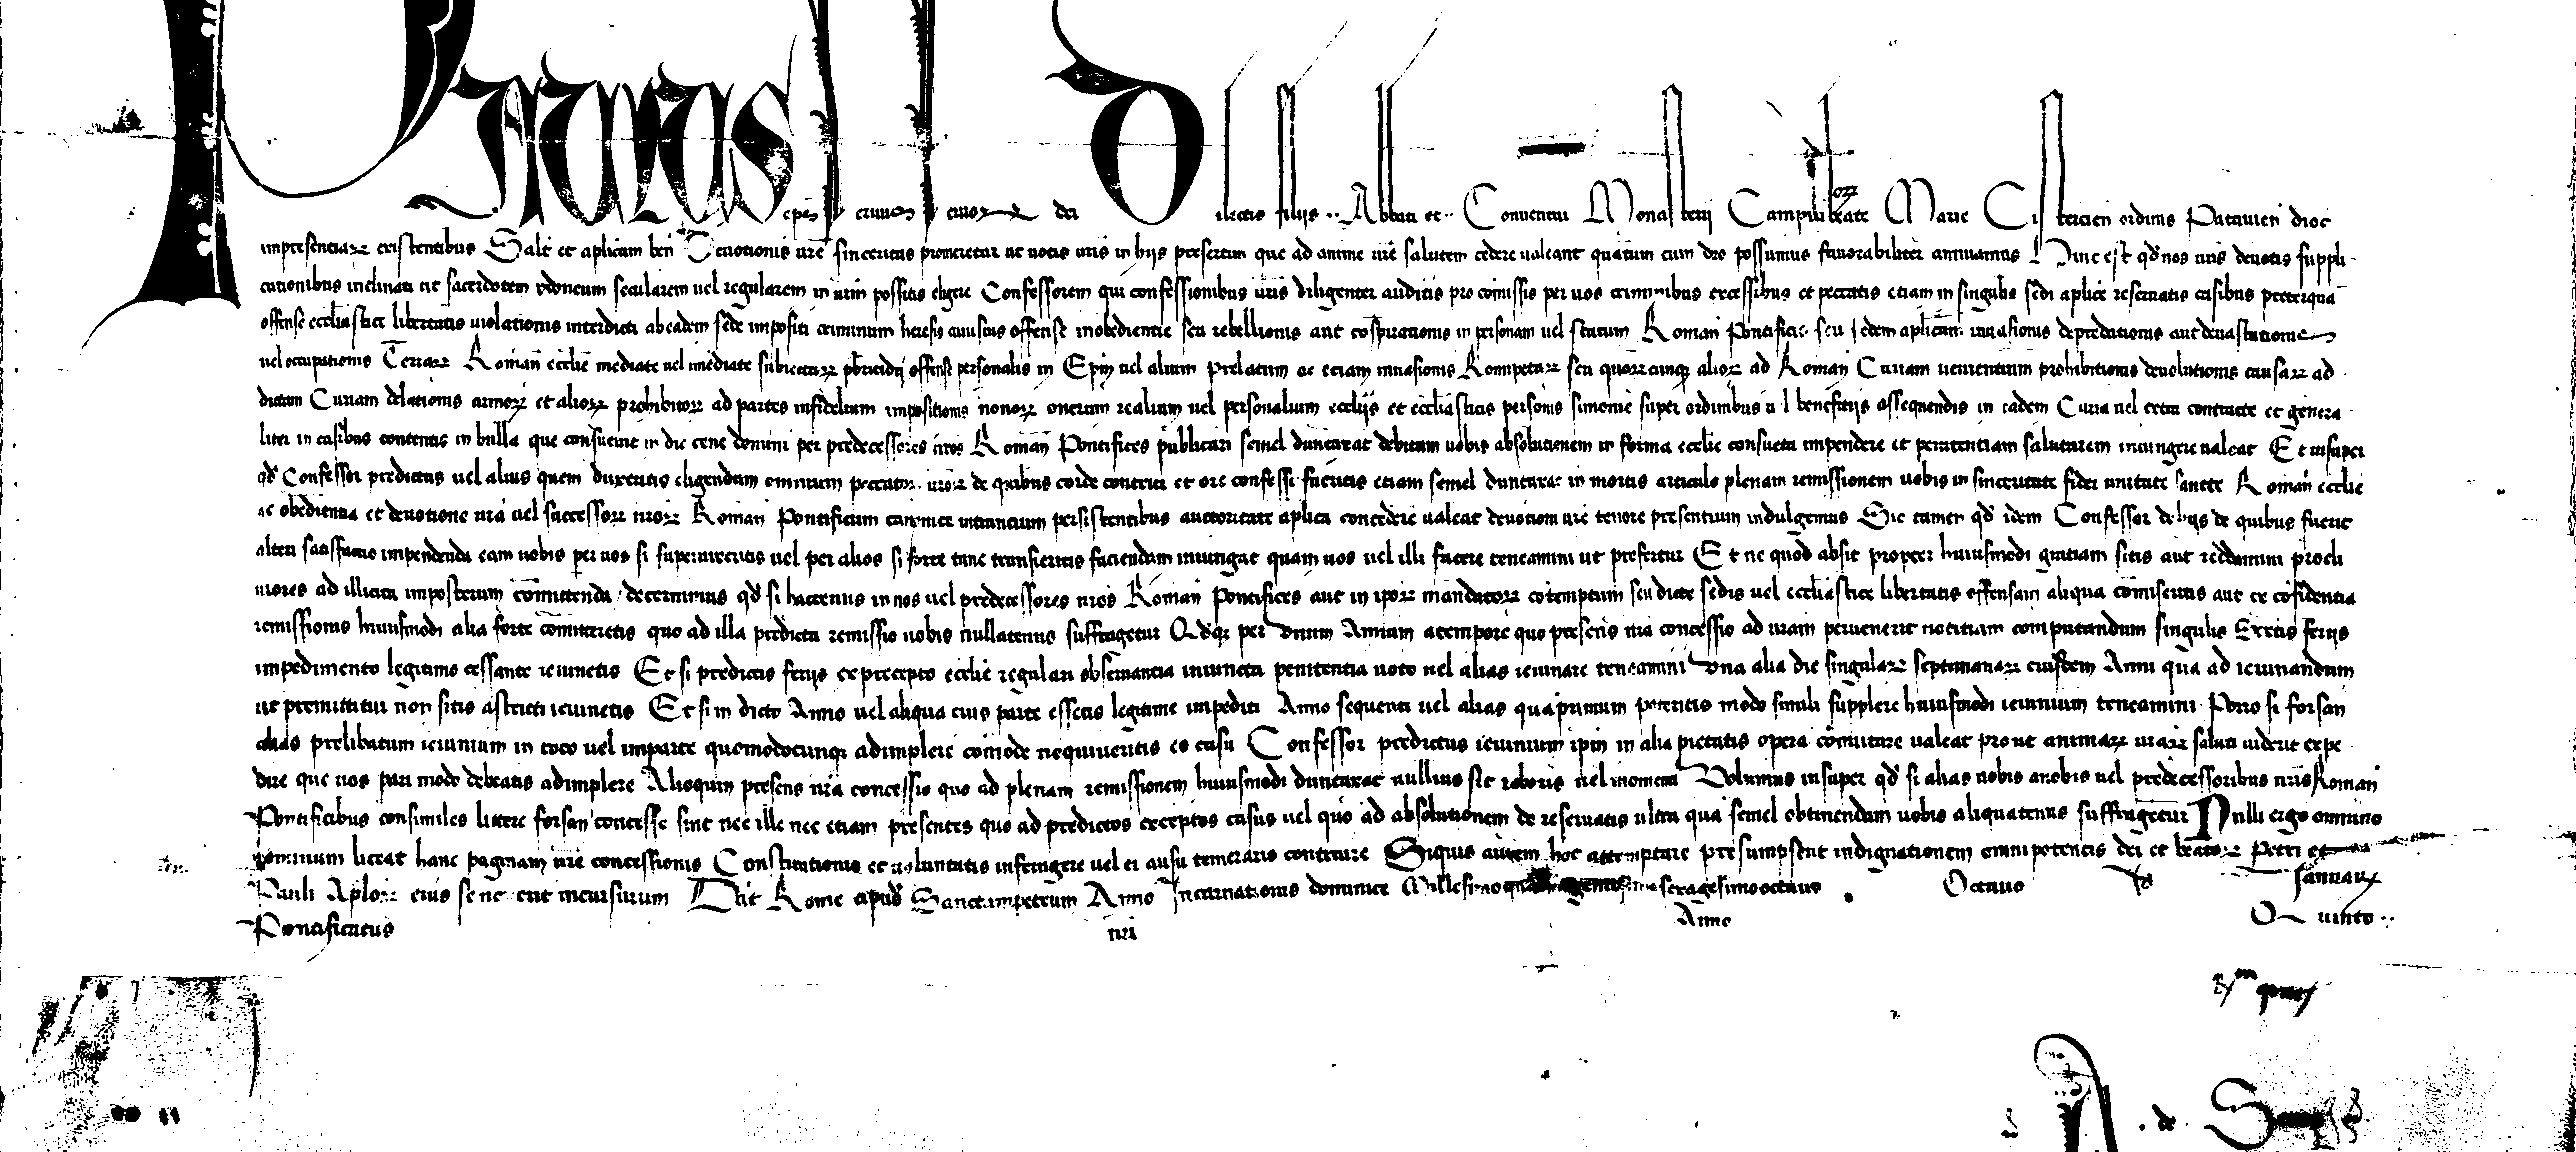 Paulus eps seruus seruorum dei Dilectis filijs .. Abbati et .. Conuentui Monasterij Campililiorum beate Marie Cistercien ordinis Patauien dioc
impresentiarum existentibus Salt et aplicam ben Deuotionis vre sinceritas promeretur ut votis vris in hijs presertim que ad anime vre salutem cedere valeant quatum cum deo possumus fauorabiliter annuamus Hinc est qd nos vris deuotis suppli
cationibus inclinati ut sacerdotem ydoneum secularem uel regularem in vrm possitis eligere Confessorem qui confessionibus vris diligenter auditis pro comissis per vos criminibus excessibus et peccatis etiam in singulis sedi aplice reseruatis casibus preterqua
offense ecclesiastice libertatis violationis interdicti ab eadem sede impositi criminum heresis cuiusuis offense inobedientie seu rebellionis aut cospirationis in personam uel statum Roman Pontificis seu sedem aplicam inuasionis depredationis aut deuastationis
uel occupationis Terrarum Roman ecclie mediate uel imediate subiectarum presbiteridij offense personalis in Epm uel alium Prelatum ac etiam inuasionis Romipetarum seu quorumcunque aliorum ad Roman Curiam uenientium prohibitionis deuolutionis causarum ad
dictam Curiam delationis armorum et aliorum prohibitorum ad partes infidelium impositionis nouorum onerum realium uel personalium ecclijs et ecclesiasticis personis simonie super ordinibus uel beneficijs assequendis in eadem Curia uel extra contracte et genera
liter in casibus contentis in bulla que consueuit in die cene domini per predecessores nros Roman Pontifices publicari semel duntaxat debitam vobis absolutionem in forma ecclie consueta impendere et penitentiam salutarem iniungere ualeat Et insuper
qd Confessor predictus uel alius quem duxeritis eligendum omnium peccatorum vrorum de quibus corde contriti et ore confessi fueritis etiam semel duntaxat in mortis articulo plenam remissionem vobis in sinceritate fidei unitate sancte Roman ecclie
ac obedientia et deuotione nra uel successorum nrorum Roman Pontificum canonice intrantium persistentibus auctoritate aplica concedere ualeat deuotioni vre tenore presentium indulgemus Sic tamen qd idem Confessor de hijs de quibus fuerit
alteri satisfactio impendenda eam vobis per vos si superuixeritis uel per alios si forte tunc transieritis faciendam iniungat quam vos uel illi facere teneamini ut prefertur Et ne quod absit propter huiusmodi gratiam sitis aut reddamini procli
uiores ad illicita imposterum comittenda decernimus qd si hactenus in nos uel predecessores nros Roman Pontifices aut in ipsorum mandatorum cotemptum seu dicte sedis uel ecclesiastice libertatis offensam aliqua comisistis aut ex cofidentia
remissionis huiusmodi alia forte comitteretis quo ad illa predicta remissio vobis nullatenus suffragetur Qdque per vnum Annum a tempore quo presens nra concessio ad vram peruenerit notitiam computandum singulis sextis ferijs
impedimento legitimo cessante ieiunetis Et si predictis ferijs ex precepto ecclie regulari obseruantia iniuncta penitentia voto uel alias ieiunare teneamini vna alia die singularum septimanarum eiusdem Anni qua ad ieiunandum
ut premittitur non sitis astricti ieiunetis Et si in dicto Anno uel aliqua eius parte essetis legitime impediti Anno sequenti uel alias quaprimum poteritis modo simili supplere huiusmodi ieiunium teneamini Porro si forsan
alias prelibatum ieiunium in toto uel in parte quomodocunque adimplere comode nequiueritis eo casu Confessor predictus ieiunium ipm in alia pietatis opera comutare ualeat prout animarum vrarum saluti viderit expe
dire que vos pari modo debeatis adimplere Alioquin presens nra concessio quo ad plenam remissionem huiusmodi duntaxat nullius sit roboris uel momenti Volumus insuper qd si alias vobis a nobis uel predecessoribus nris Roman
Pontificibus consimiles littere forsan concesse sint nec ille nec etiam presentes quo ad predictos exceptos casus uel quo ad absolutionem de reseruatis ultra qua semel obtinendam vobis aliquatenus suffragetur Nulli ergo omnino
hominum liceat hanc paginam nre concessionis Constitutionis et voluntatis infringere uel ei ausu temerario contraire Siquis autem hoc attemptare presumpserit indignationem omnipotentis dei et beatorum Petri et
Pauli Aplorum eius se nouerit incursurum Dat Rome apud Sanctumpetrum Anno Incarnationis dominice Millesimoquadringentesimosexagesimooctauo . Octauo Kl Januarij
Pontificatus nri Anno Quinto ..
. de .